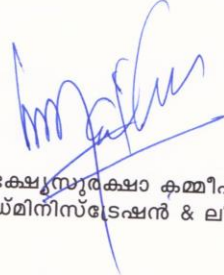 ക്ഷ്യസുരക്ഷാ കമ്മീഷ
ഡ്മിനിസ്ട്രേഷൻ & ലി